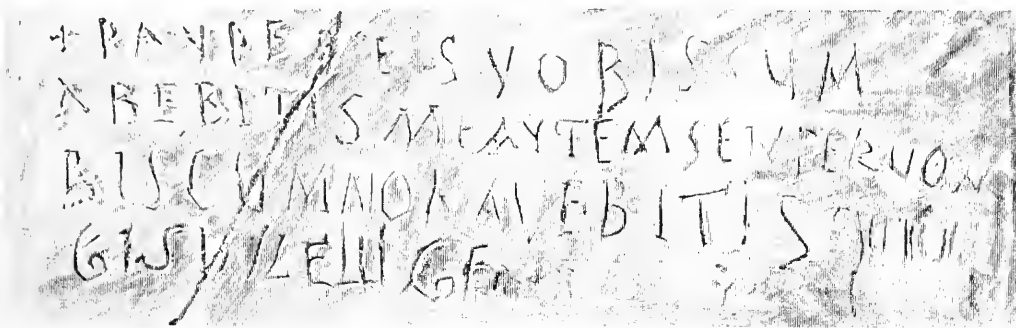 + PAYPERES YOBISCUM
ABEBITIS ME AYTEM SENPER VO
BISCUM NON AVEBITIS
GIS